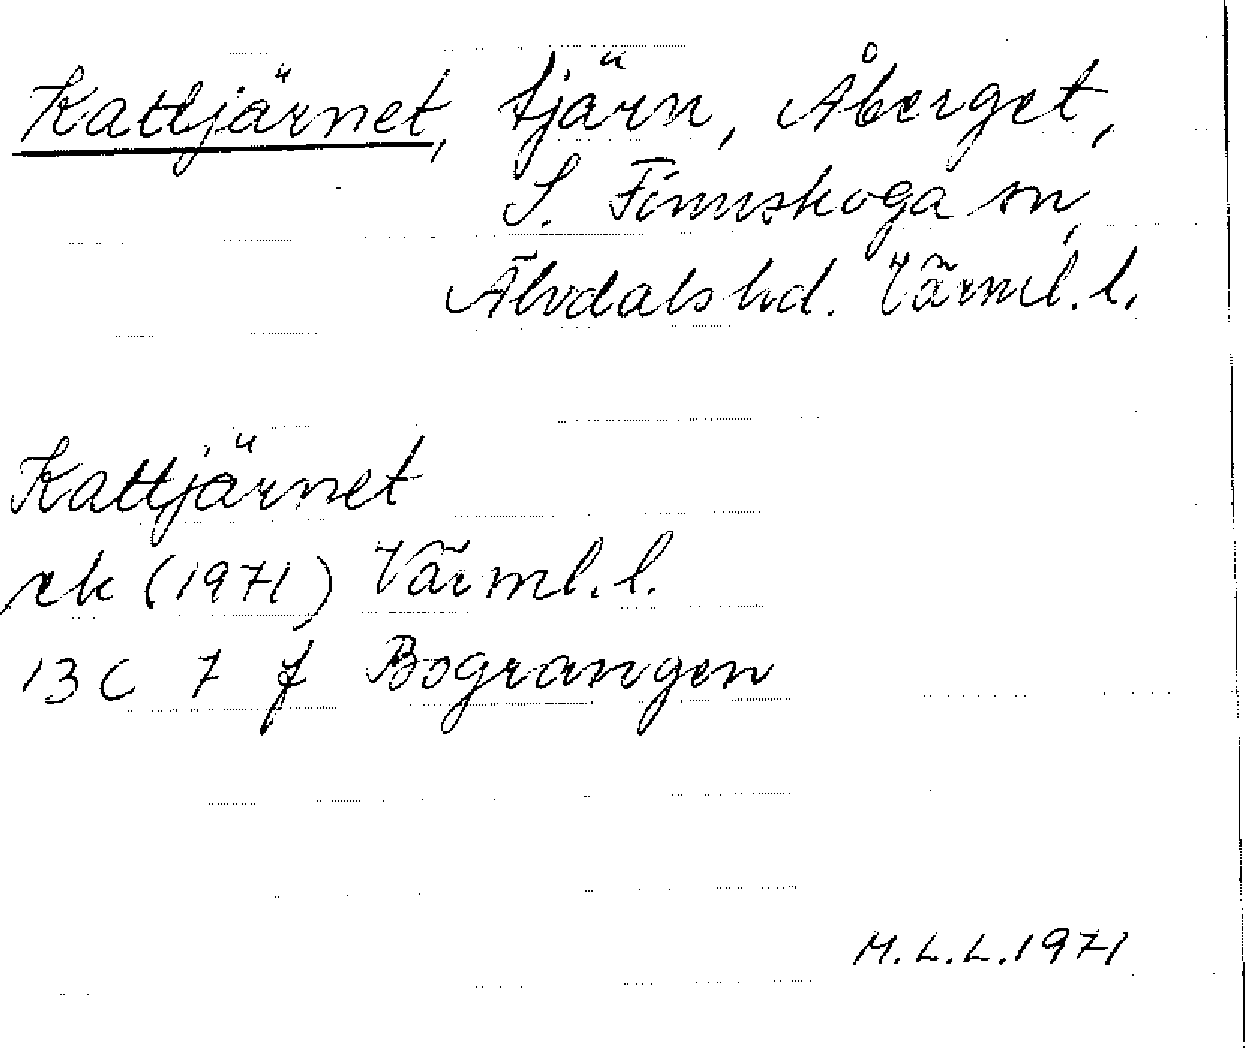 Kattjärnet, tjärn, Åberget,
S. Finnskoga sn,
Älvdals hd. Värml. l.
Kattjärnet
rk (1971) Värml. l.
13 C 7 f Bograngen
M.L.L. 1971